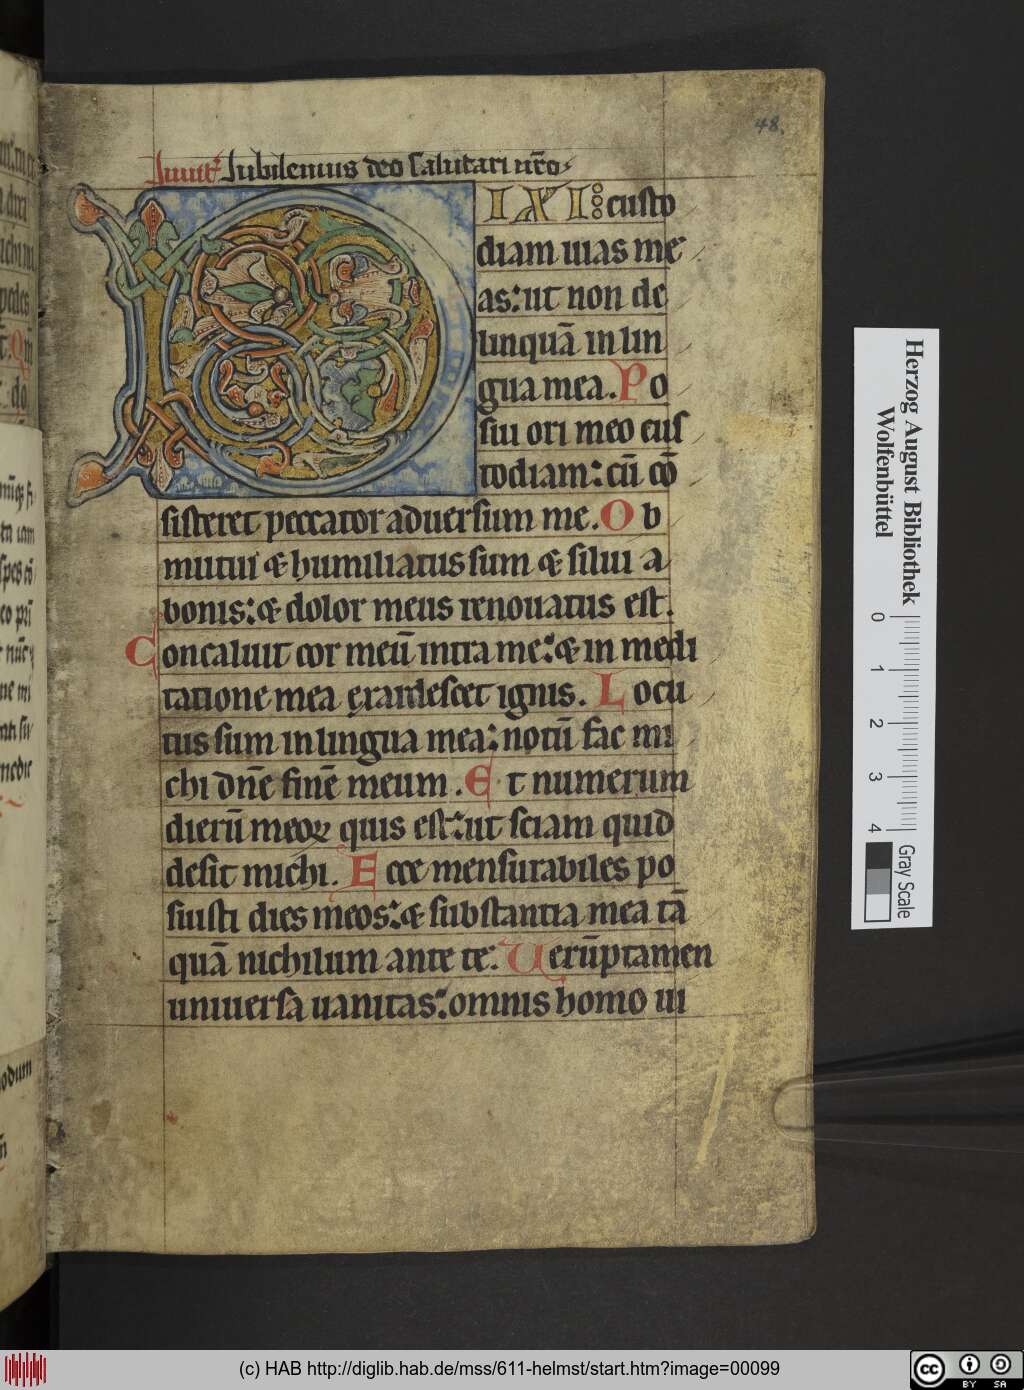 48.
Inuit. Iubilemus deo salutari nr̄o
DIXI: custo
diam uias me
as: ut non de
linquā in lin
gua mea. Po
sui ori meo cus
todiam: cū cō
sisteret peccator aduersum me. Ob
mutui & humiliatus sum & silui a
bonis: & dolor meus renouatus est.
Concaluit cor meū intra me: & in medi
tatione mea exardescet ignis. Locu
tus sum in lingua mea: notū fac mi
chi dn̄e finē meum. Et numerum
dierū meoꝝ quis est: ut sciam quid
desit michi. Ecce mensurabiles po
suisti dies meos: & substantia mea tā
quā nichilum ante te. Uerūptamen
uniuersa uanitas: omnis homo ui
Herzog August Bibliothek
Wolfenbüttel
0 1 2 3 4
Gray Scale
(c) HAB http://diglib.hab.de/mss/611-helmst/start.htm?image=00099
cc BY SA